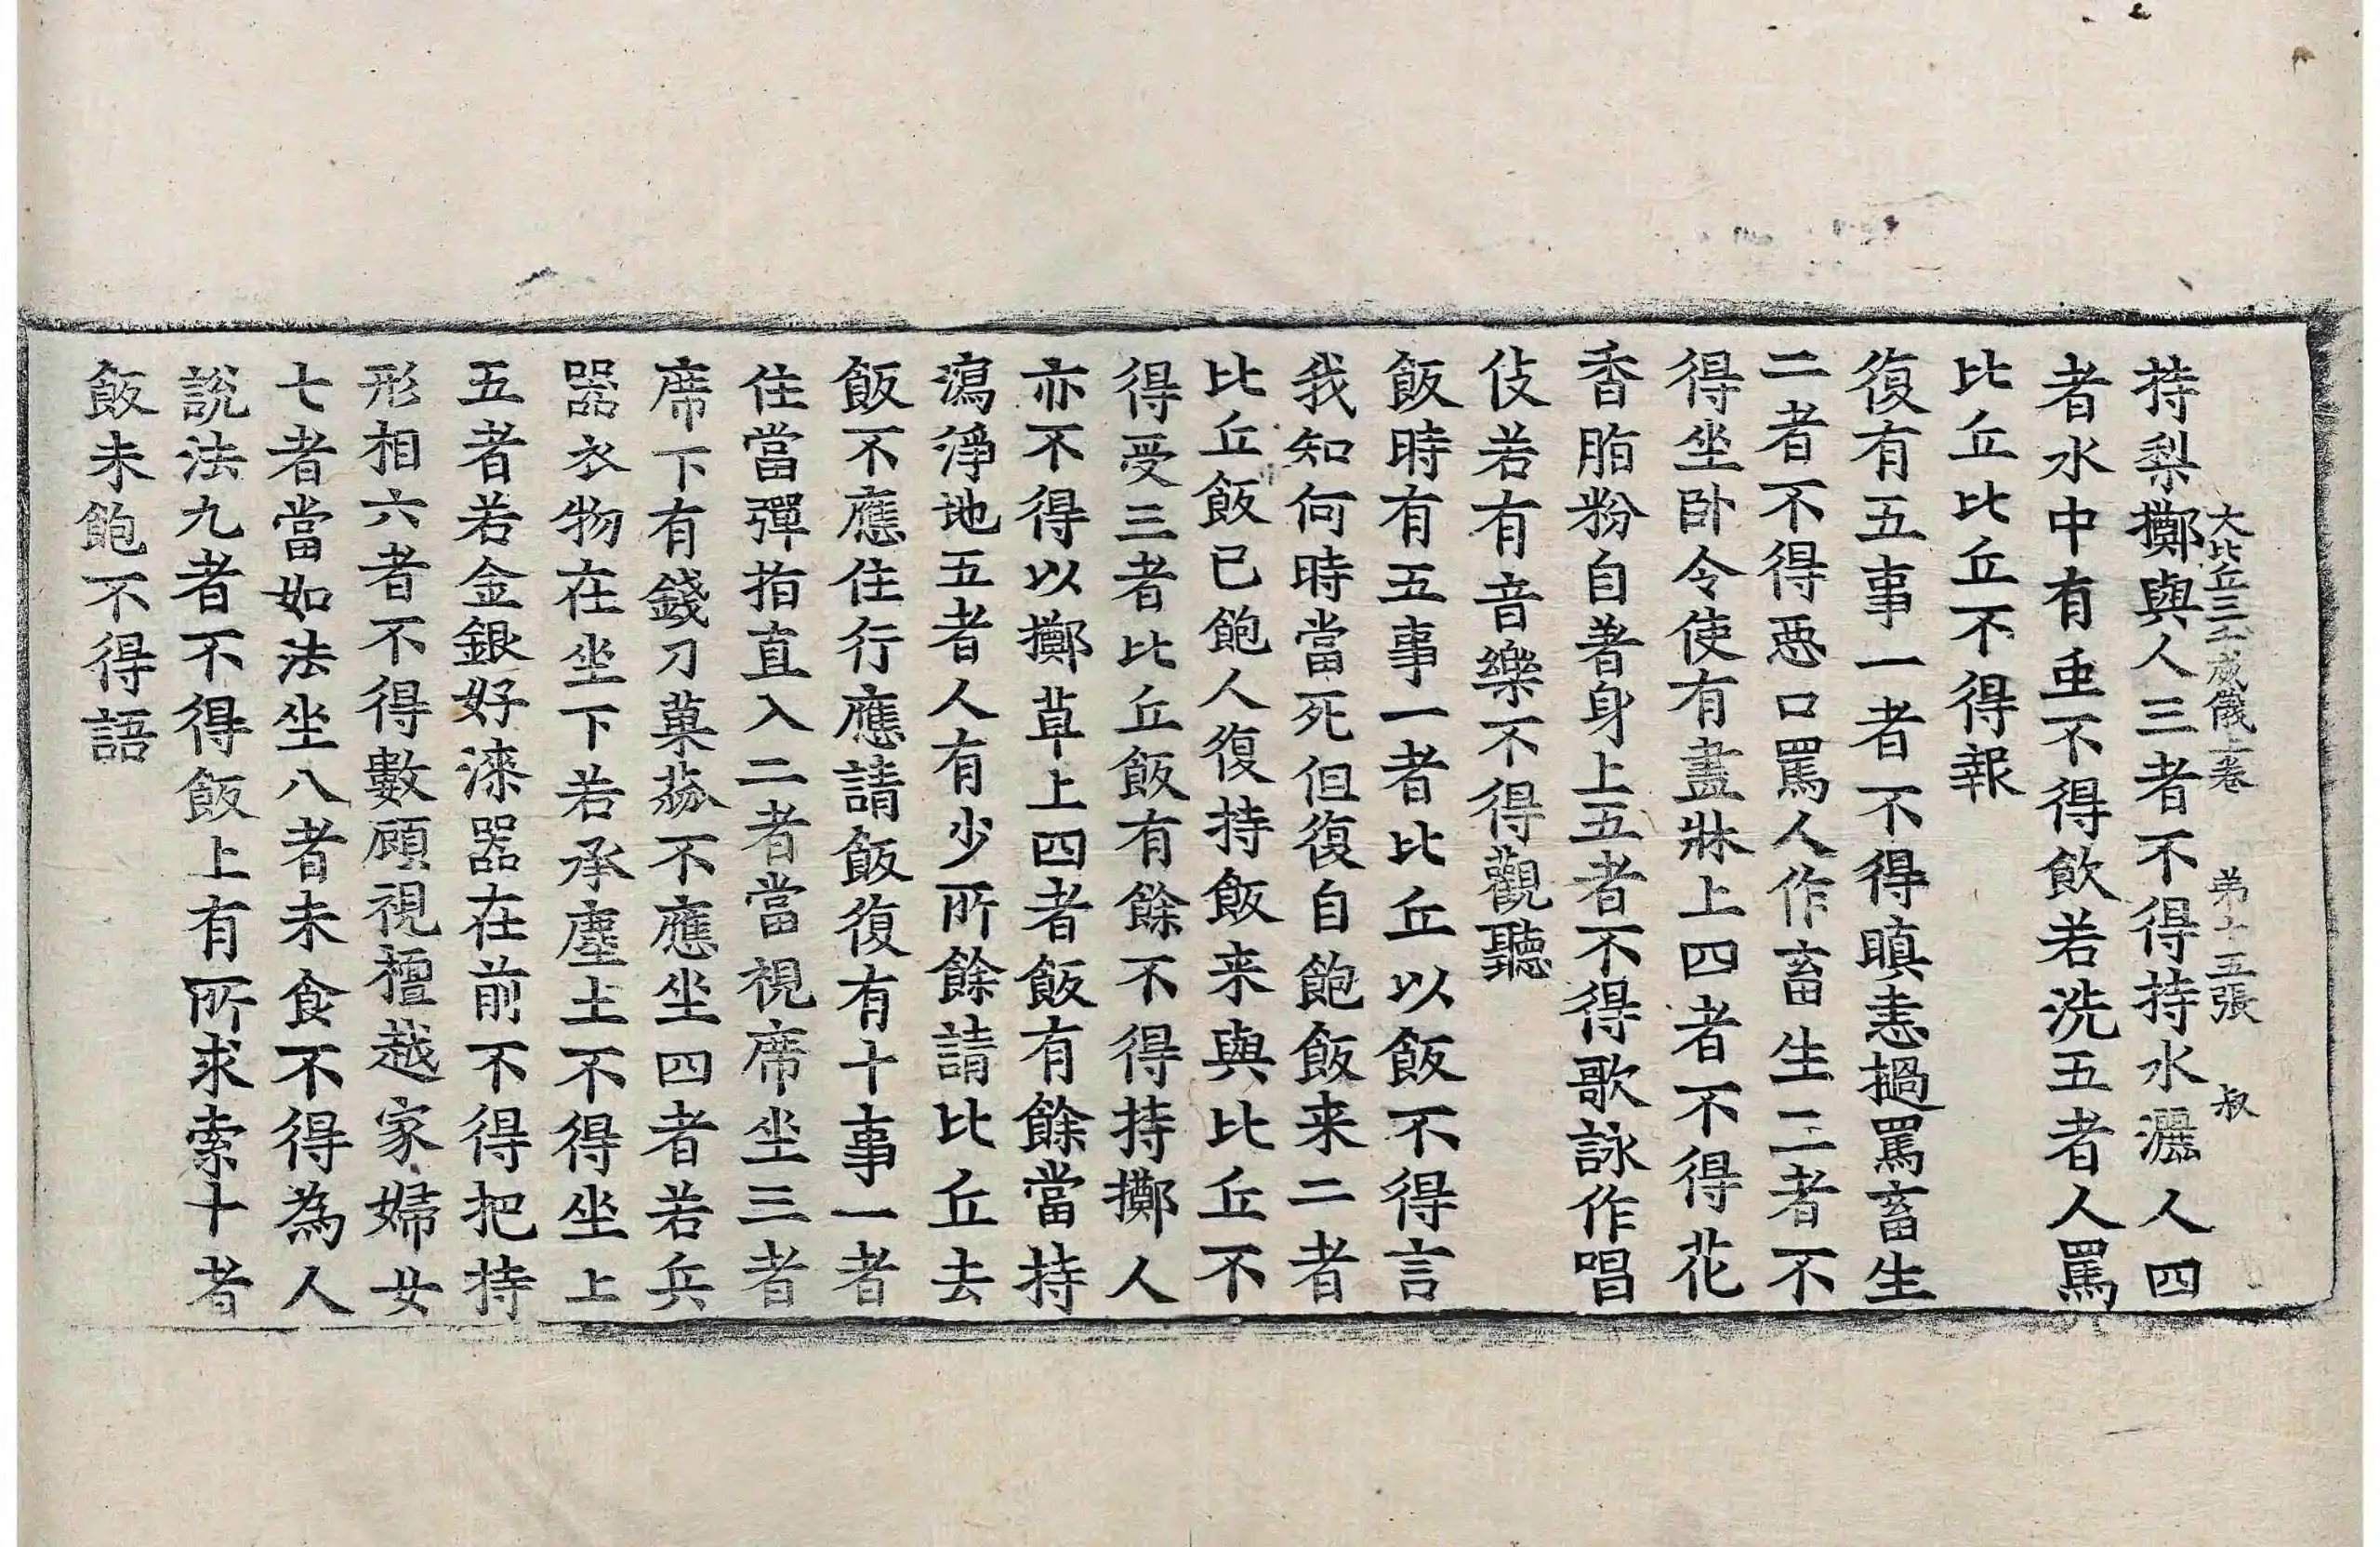 大比丘三千威儀上卷 第十五張 叔
持梨擲與人三者不得持水灑人四
者水中有重不得飲若洗五者人罵
比丘比丘不得報
復有五事一者不得瞋恚撾罵畜生
二者不得惡口罵人作畜生三者不
得坐卧令使有盡牀上四者不得花
香脂粉自著身上五者不得歌詠作唱
伎若有音樂不得觀聽
飯時有五事一者比丘以飯不得言
我知何時當死但復自飽飯来二者
比丘飯已飽人復持飯来與比丘不
得受三者比丘飯有餘不得持擲人
亦不得以擲草上四者飯有餘當持
瀉淨地五者人有少所餘請比丘去
飯不應住行應請飯復有十事一者
住當彈指直入二者當視席坐三者
席下有錢刀菓蓏不應坐四者若兵
器衣物在坐下若承塵土不得坐上
五者若金銀好漆器在前不得把持
形相六者不得數顧視檀越家婦女
七者當如法坐八者未食不得為人
說法九者不得飯上有所求索十者
飯未飽不得語